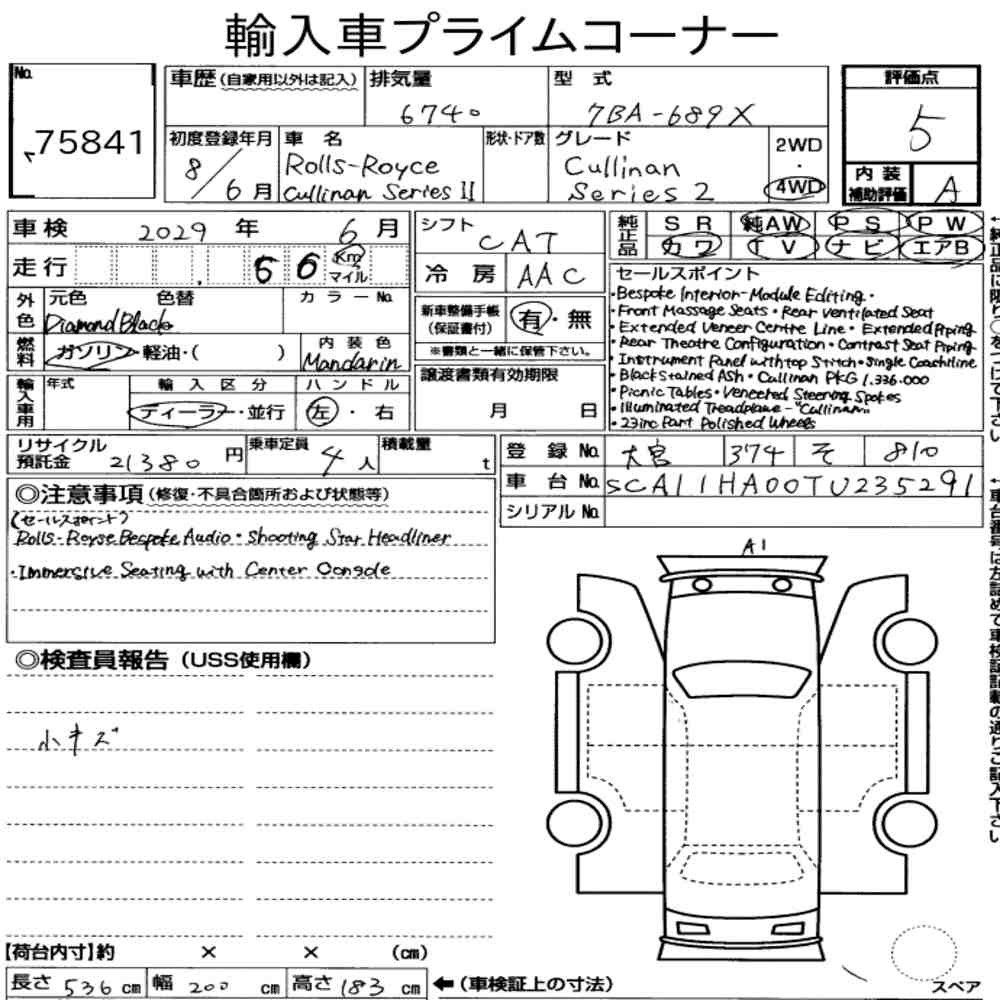 輸入車プライムコーナー
No. 75841
車歴(自家用以外は記入)
排気量 6740
型 式 7BA-689X
評価点 5
内装補助評価 A
初度登録年月 8/6月
車 名 Rolls-Royce Cullinan Series II
形状・ドア数
グレード Cullinan Series 2
2WD・4WD
車検 2029 年 6 月
走行 66 Km マイル
シフト CAT
冷房 AAC
純正品 SR 純AW PS PW
カワ TV ナビ エアB
外色 元色 色替 カラーNo.
Diamond Black
燃料 ガソリン・軽油・( )
内装色 Mandarin
新車整備手帳(保証書付) 有・無
※書類と一緒に保管下さい。
輸入車用 年式 輸入区分 ハンドル
ディーラー・並行 左・右
譲渡書類有効期限
月 日
セールスポイント
・Bespoke Interior-Module Editing・
・Front Massage Seats・Rear Ventilated Seat
・Extended Veneer Centre Line・Extended Piping
・Rear Theatre Configuration・Contrast Seat Piping
・Instrument Panel with top Stitch・Single Coachline
・Black Stained Ash・Cullinan PKG 1.336.000
・Picnic Tables・Veneered Steering Spokes
・Illuminated Treadplane-"Cullinan"
・23inc Part Polished Wheels
リサイクル預託金 21380 円
乗車定員 4 人
積載量 t
登 録 No. 大宮 374 そ 810
車 台 No. SCA11HA00TU235291
シリアル No.
◎注意事項(修復・不具合箇所および状態等)
(セールスポイント)
Rolls-Royse Bespoke Audio・Shooting Star Headliner
・Immersive Seating with Center Consode
◎検査員報告(USS使用欄)
小キズ
A1
【荷台内寸】約 × × (cm)
長さ 536 cm 幅 200 cm 高さ 183 cm
←(車検証上の寸法)
スペア